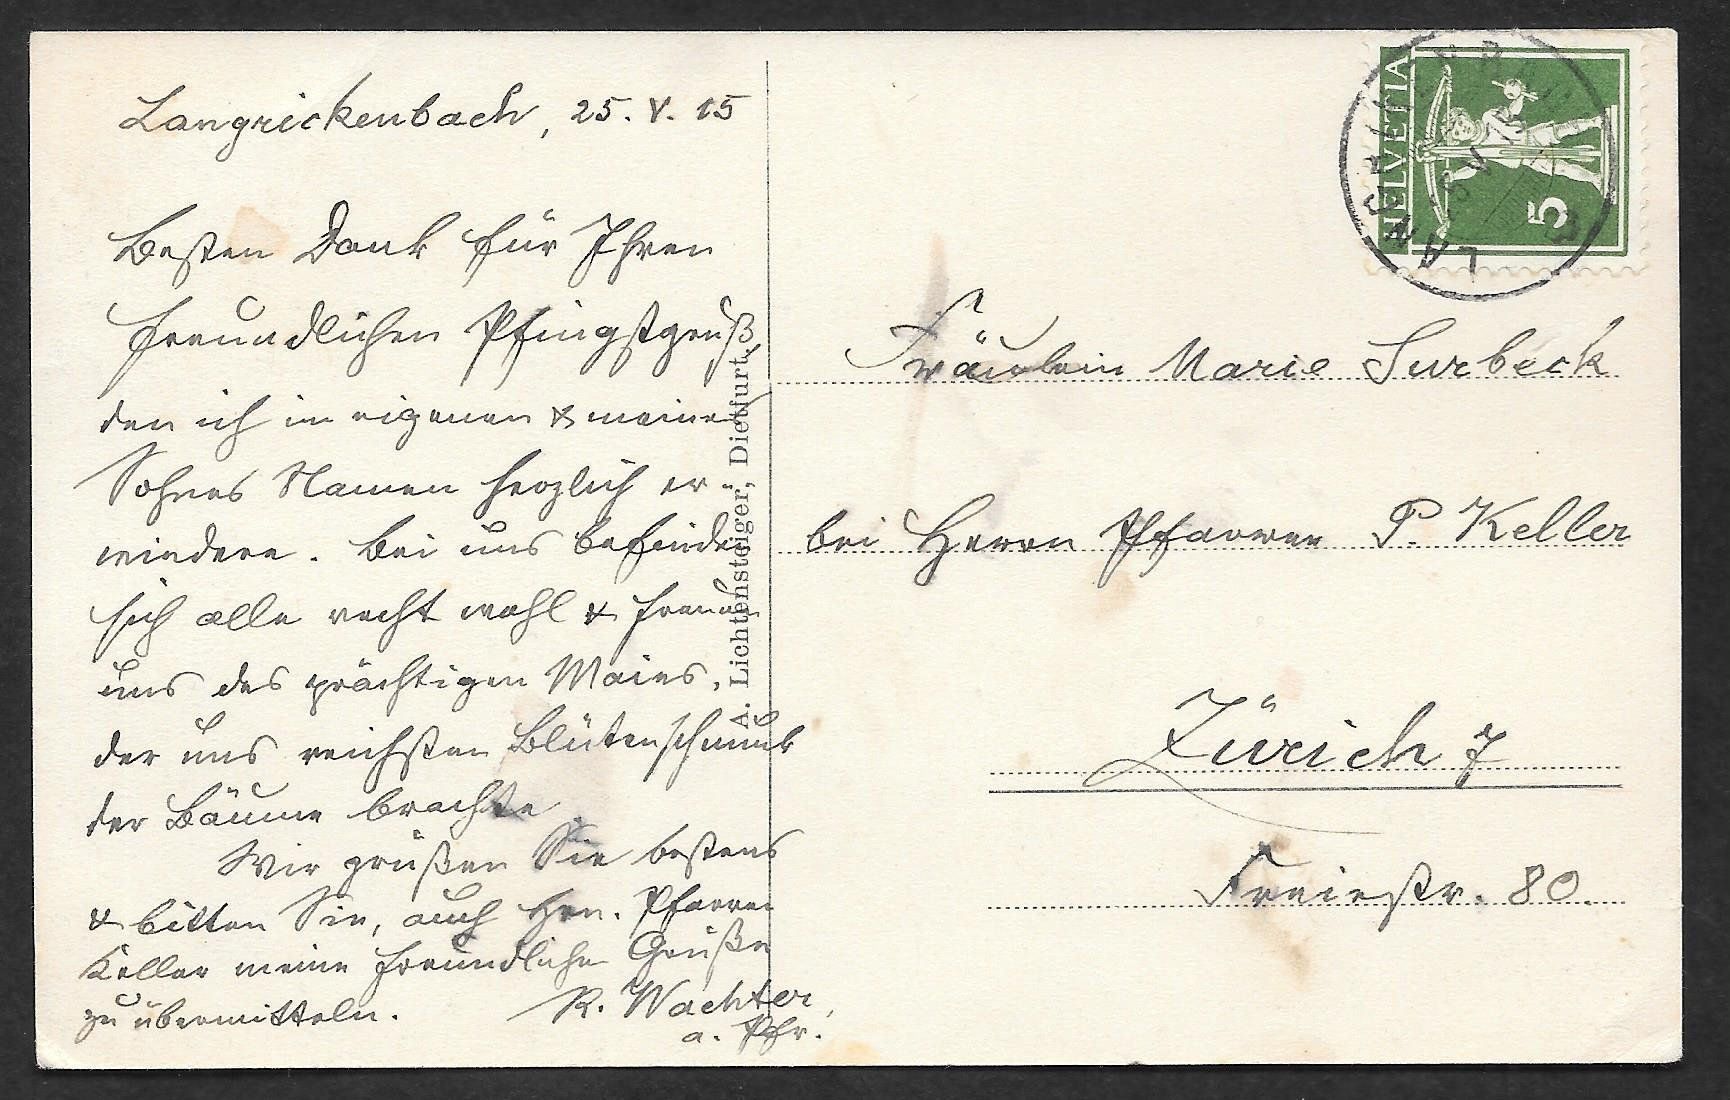 Langrickenbach, 25. V. 15
Besten Dank für Ihren
freundlichen Pfingstgruß,
den ich im eigenen & meines
Sohnes Namen herzlich er-
widere. Bei uns befinden
sich alle recht wohl & freuen
uns des prächtigen Maies,
der uns reichsten Blütenschmuck
der Bäume brachte.
Wir grüßen Sie bestens
& bitten Sie, auch Hrn. Pfarrer
Keller meine freundlichen Grüße
zu übermitteln. R. Wachter,
a. Pfr.
A. Lichtensteiger, Dietfurt.
HELVETIA
5
LANGRICKENBACH
Fräulein Marie Surbeck
bei Herrn Pfarrer P. Keller
Zürich 7
Freiestr. 80.